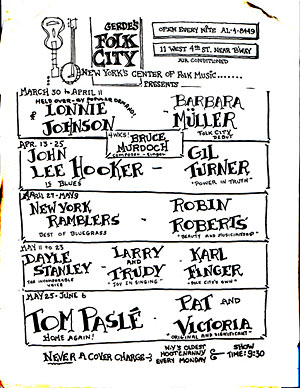 GERDE'S
FOLK
CITY
OPEN EVERY NITE AL·4·8449
11 WEST 4TH ST. NEAR B'WAY
AIR CONDITIONED
NEW YORK'S CENTER OF FOLK MUSIC.......
PRESENTS
MARCH 30 TO APRIL 11
HELD OVER-BY POPULAR DEMAND!
LONNIE
JOHNSON
BARBARA
MÜLLER
FOLK CITY
DEBUT
4 WKS!
BRUCE
MURDOCH
COMPOSER - SINGER
APR. 13-25
JOHN
LEE HOOKER -
IS BLUES
GIL
TURNER
"POWER IN TRUTH"
APRIL 27-MAY 9
NEW YORK
RAMBLERS
BEST OF BLUEGRASS
ROBIN
ROBERTS
"BEAUTY AND MUSICIANSHIP"
MAY 11 TO 23
DAYLE
STANLEY
THE INCOMPARABLE
VOICE
LARRY
AND
TRUDY
"JOY IN SINGING"
KARL
FINGER
"FOLK CITY'S OWN"
MAY 25-JUNE 6
TOM PASLÉ
HOME AGAIN!
PAT AND
VICTORIA
"ORIGINAL AND SIGNIFICANT"
NEVER A COVER CHARGE
N.Y'S OLDEST
HOOTENANNY
EVERY MONDAY
&
SHOW
TIME: 9:30